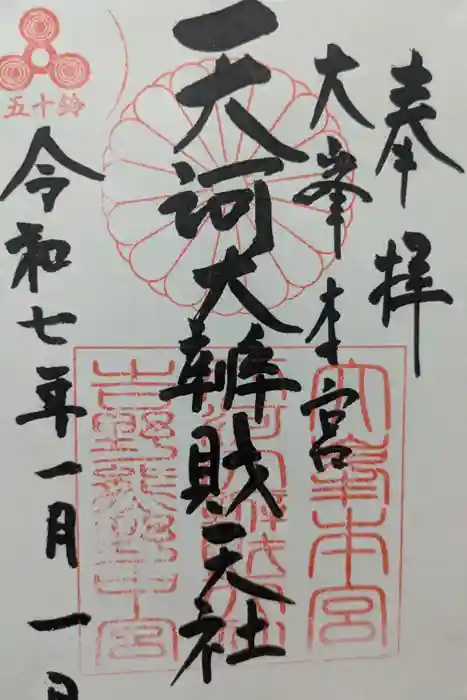 奉拝
大峯本宮
天河大辨財天社
令和七年一月一日
五十鈴
大峯本宮